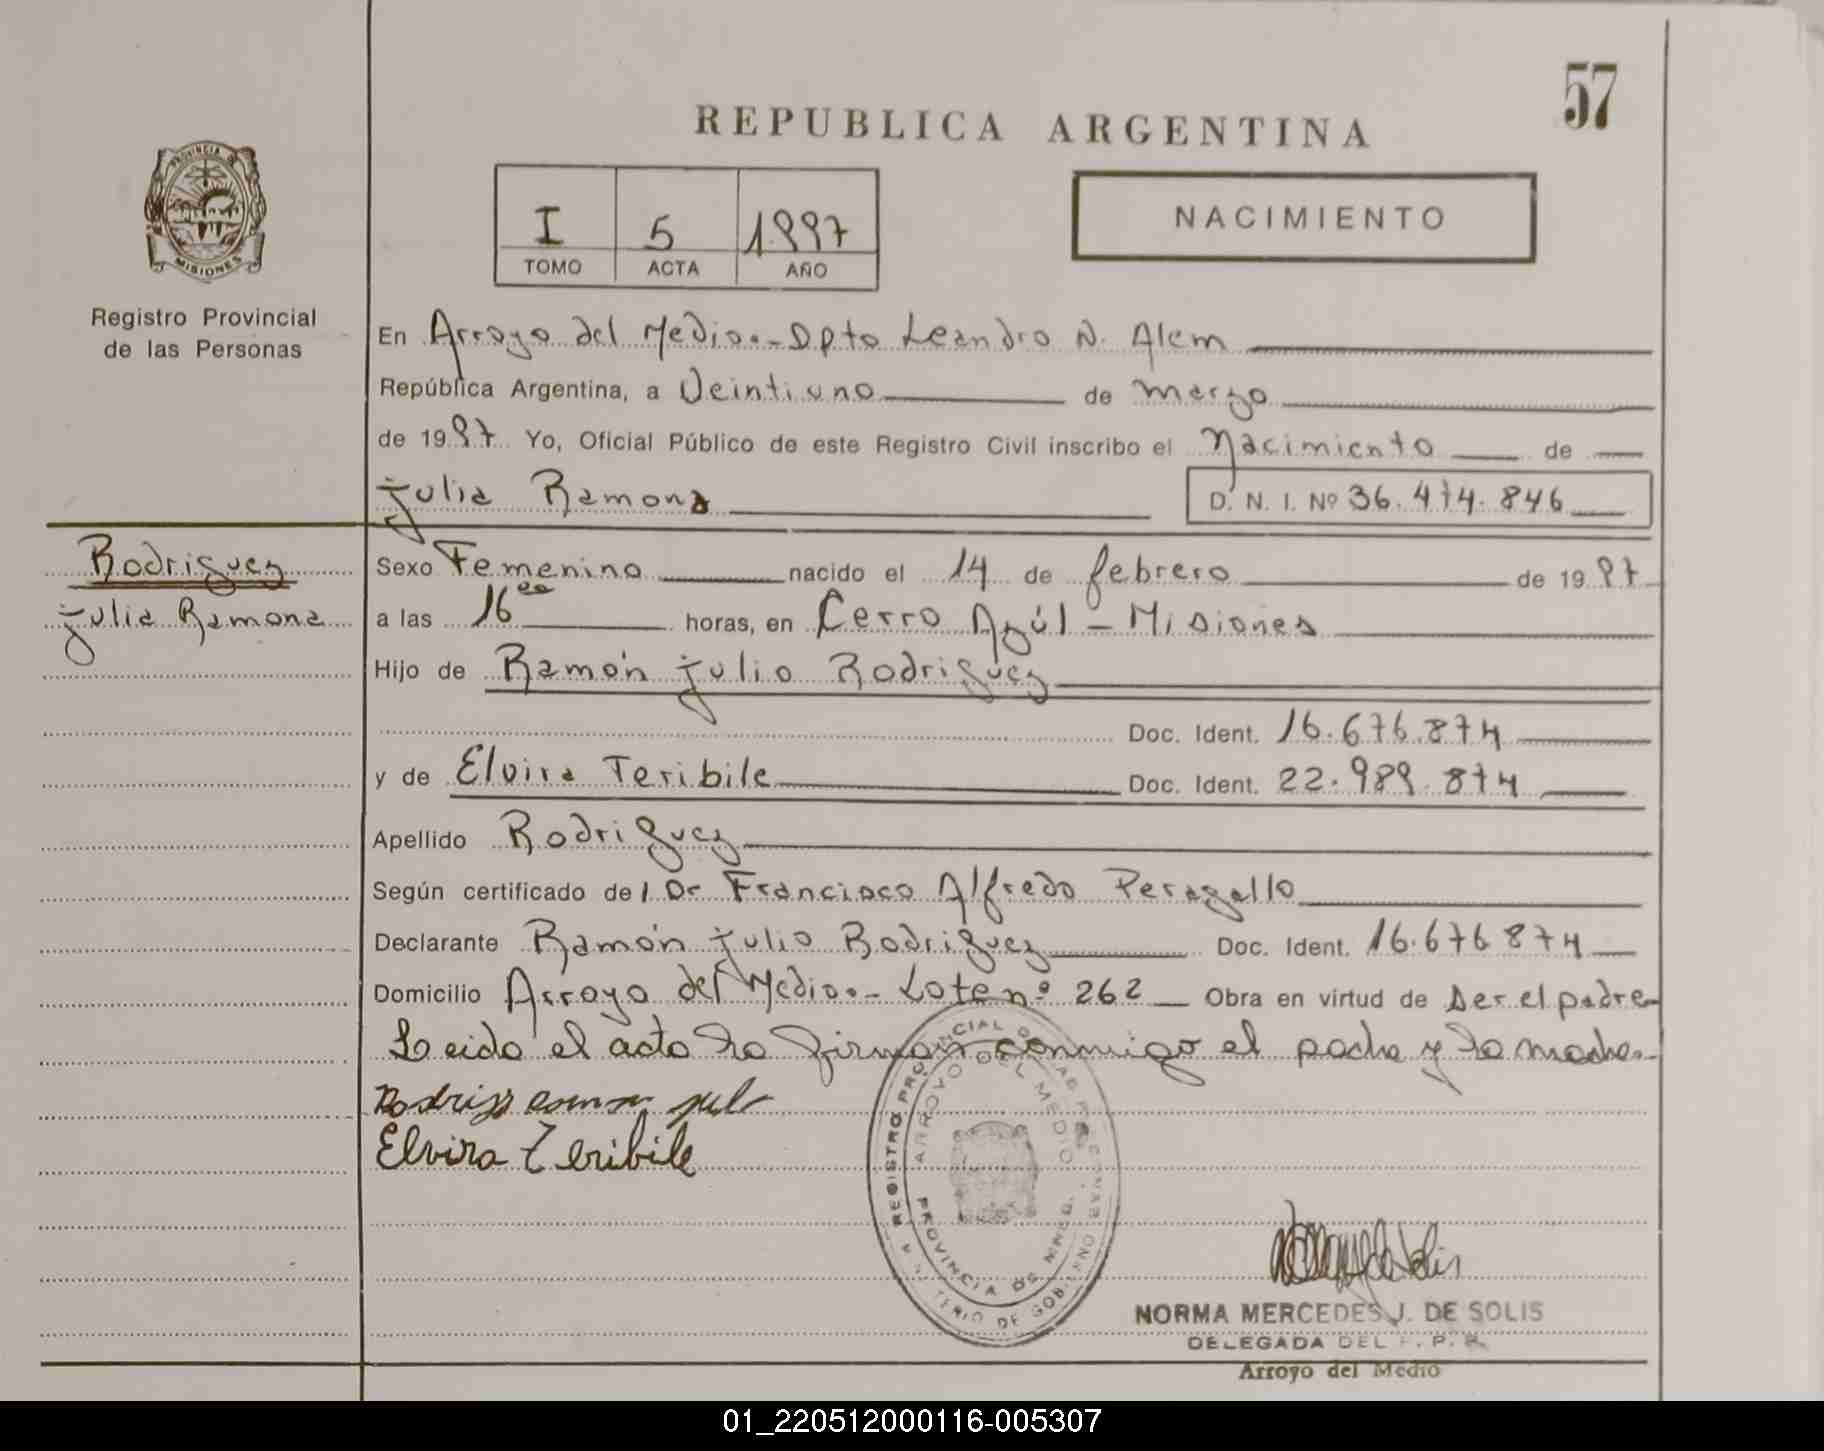 57
REPUBLICA ARGENTINA
PROVINCIA DE
MISIONES
I 5 1.997
TOMO ACTA AÑO
NACIMIENTO
Registro Provincial
de las Personas
En Arroyo del Medio.- Dpto Leandro N. Alem
República Argentina, a Veintiuno de marzo
de 1997 Yo, Oficial Público de este Registro Civil inscribo el Nacimiento de
Julia Ramona D. N. I. Nº 36.474.846
Rodriguez
Julia Ramona
Sexo Femenino nacido el 14 de febrero de 1997
a las 16 horas, en Cerro Azúl - Misiones
Hijo de Ramón Julio Rodriguez
Doc. Ident. 16.676.874
y de Elvira Teribile Doc. Ident. 22.989.874
Apellido Rodriguez
Según certificado del Dr Francisco Alfredo Peragallo
Declarante Ramón Julio Rodriguez Doc. Ident. 16.676.874
Domicilio Arroyo del Medio.- Lote nº 262 Obra en virtud de ser el padre
Leido el acta la firman conmigo el padre y la madre.
Elvira Teribile
REGISTRO PROVINCIAL DE LAS PERSONAS
ARROYO DEL MEDIO
PROVINCIA DE MNES.
TERIO DE GOBIERNO
NORMA MERCEDES J. DE SOLIS
DELEGADA DEL R. P. P.
Arroyo del Medio
01_220512000116-005307